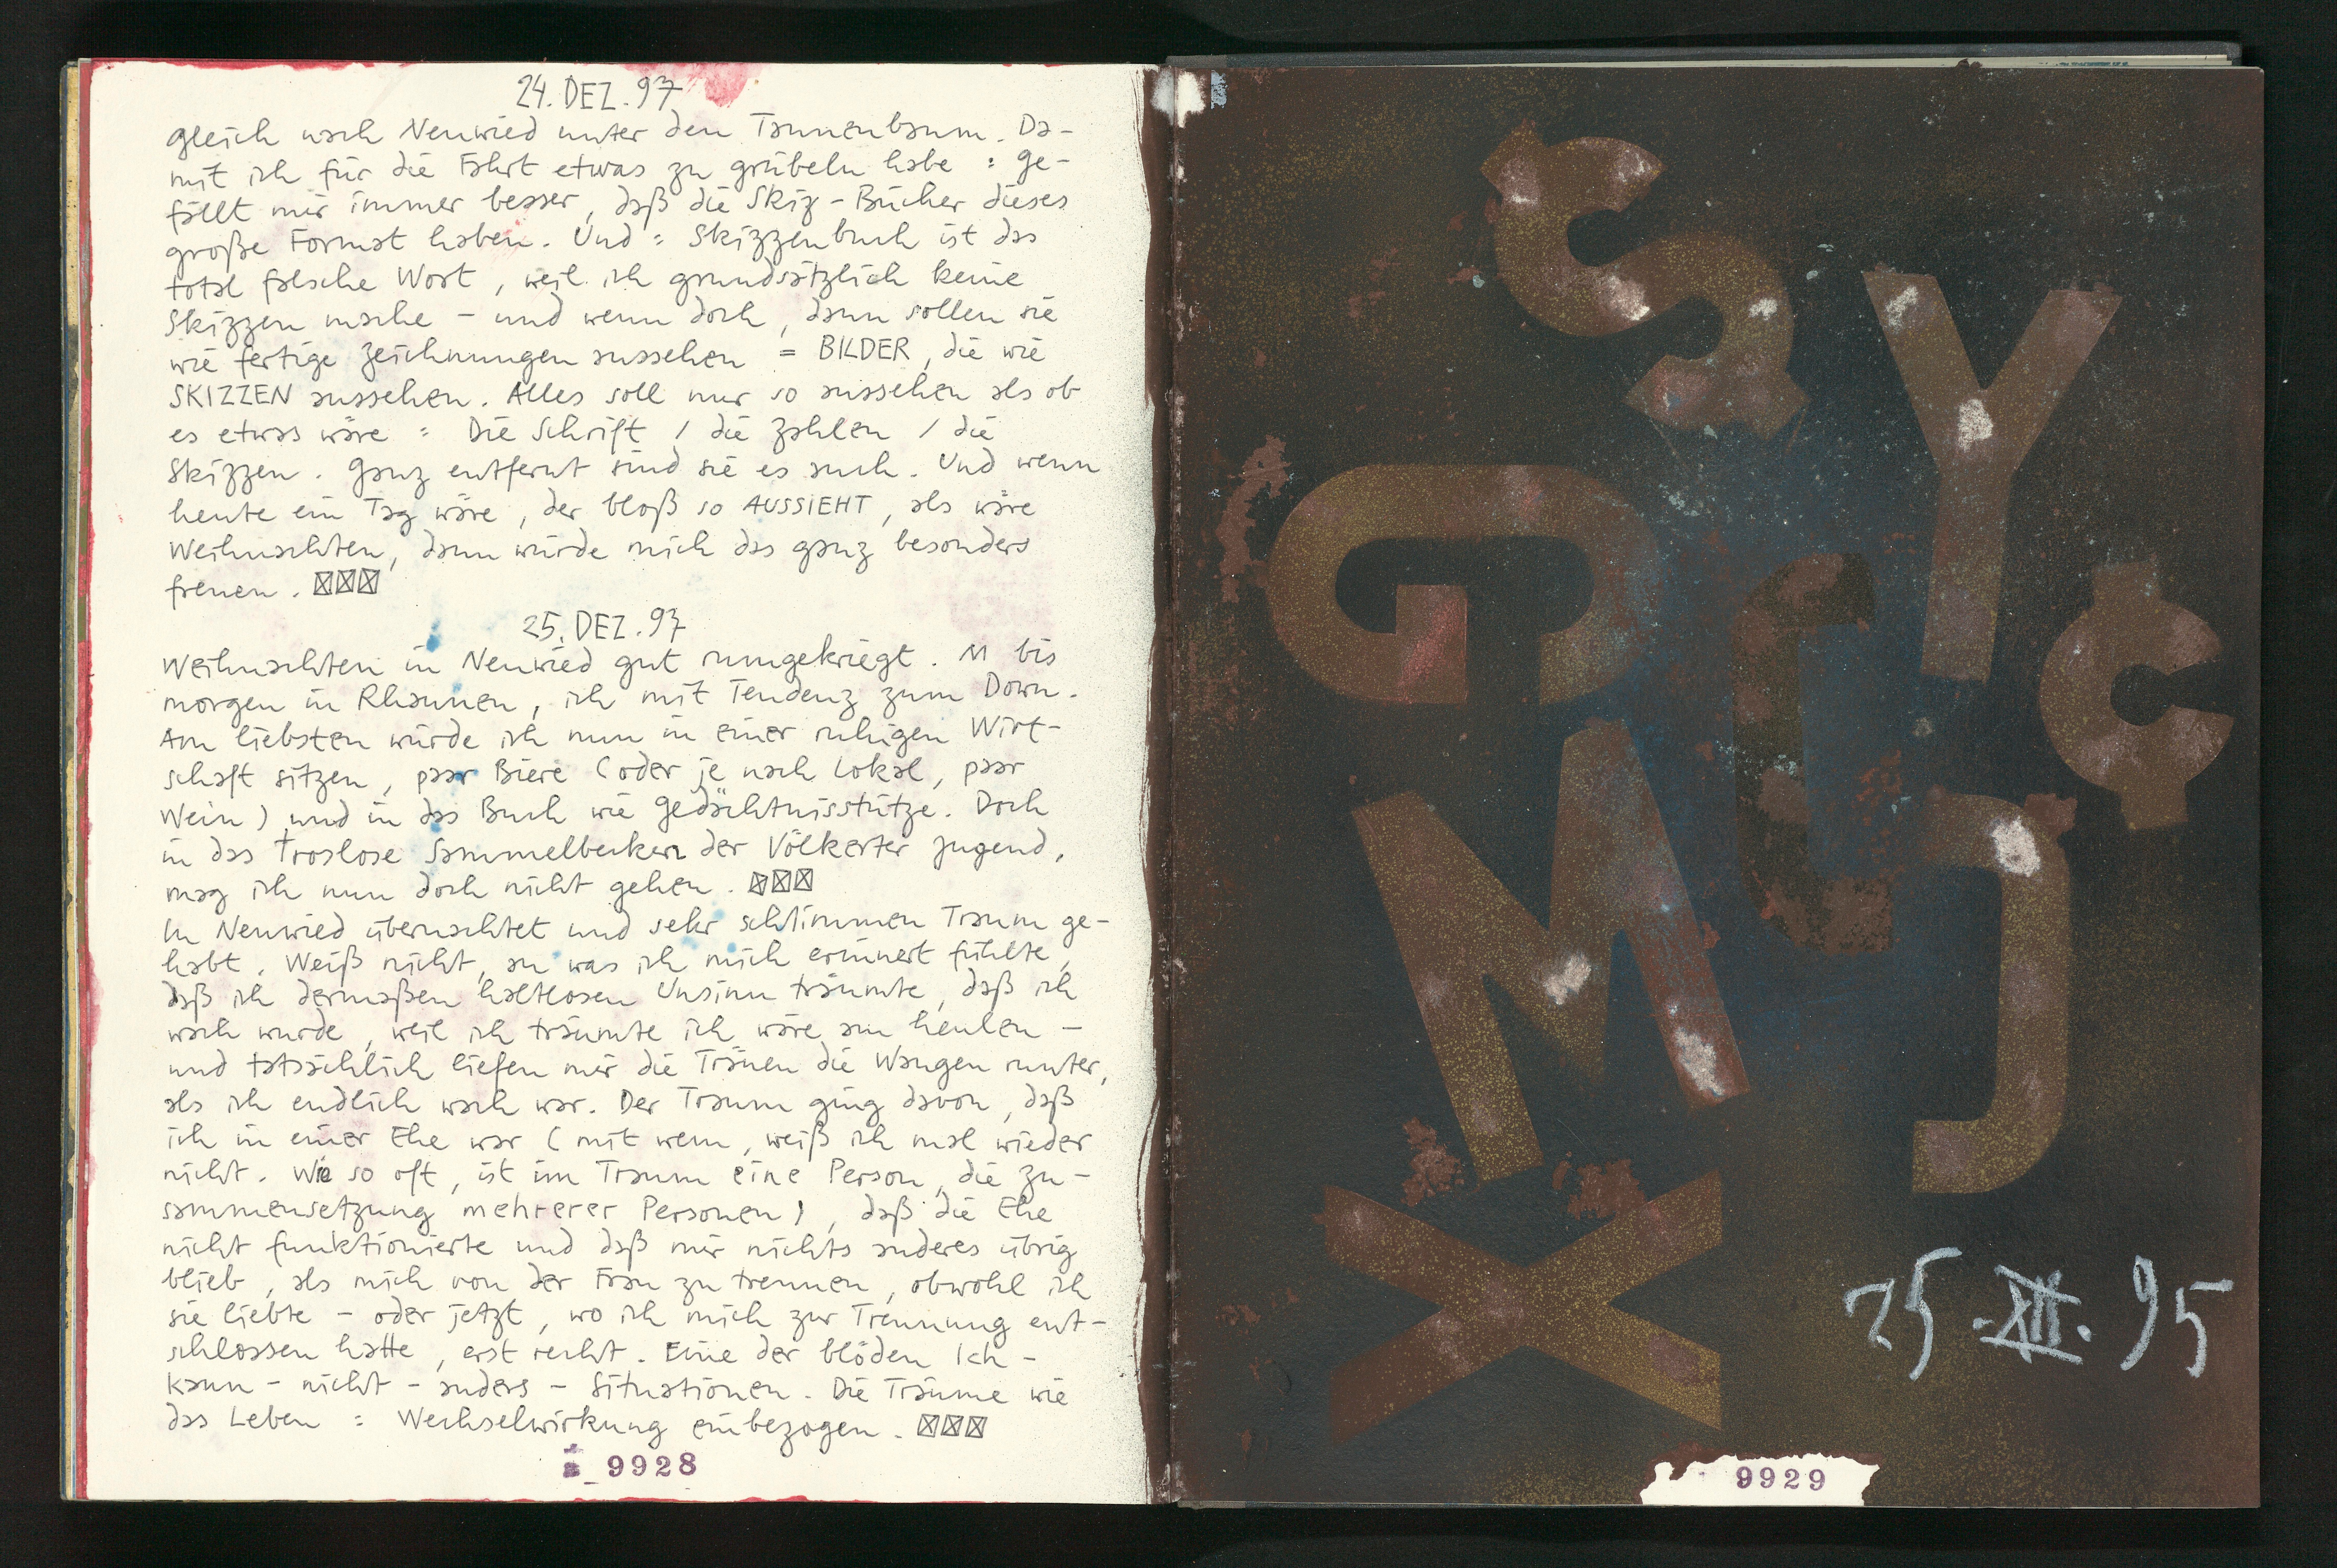 24. DEZ. 97
Gleich nach Neuwied unter den Tannenbaum. Da-
mit ich für die Fahrt etwas zu grübeln habe : Ge-
fällt mir immer besser, daß die Skiz-Bücher dieses
große Format haben. Und : Skizzenbuch ist das
total falsche Wort, weil ich grundsätzlich keine
Skizzen mache – und wenn doch, dann sollen sie
wie fertige Zeichnungen aussehen = BILDER, die wie
SKIZZEN aussehen. Alles soll nur so aussehen als ob
es etwas wäre : Die Schrift / die Zahlen / die
Skizzen. Ganz entfernt sind sie es auch. Und wenn
heute ein Tag wäre, der bloß so AUSSIEHT, als wäre
Weihnachten, dann würde mich das ganz besonders
freuen. ☒☒☒
25. DEZ. 97
Weihnachten in Neuwied gut rumgekriegt. M bis
morgen in Rhaunen, ich mit Tendenz zum Down.
Am liebsten würde ich nun in einer ruhigen Wirt-
schaft sitzen, paar Biere (oder je nach Lokal, paar
Wein) und in das Buch wie Gedächtnisstütze. Doch
in das troslose Sammelbecken der Völkerter Jugend,
mag ich nun doch nicht gehen. ☒☒☒
In Neuwied übernachtet und sehr schlimmen Traum ge-
habt. Weiß nicht, an was ich mich erinnert fühlte,
daß ich dermaßen haltlosen Unsinn träumte, daß ich
wach wurde, weil ich träumte ich wäre am heulen –
und tatsächlich liefen mir die Tränen die Wangen runter,
als ich endlich wach war. Der Traum ging davon, daß
ich in einer Ehe war (mit wem, weiß ich mal wieder
nicht. Wie so oft, ist im Traum eine Person, die Zu-
sammensetzung mehrerer Personen), daß die Ehe
nicht funktionierte und daß mir nichts anderes übrig
blieb, als mich von der Frau zu trennen, obwohl ich
sie liebte – oder jetzt, wo ich mich zur Trennung ent-
schlossen hatte, erst recht. Eine der blöden Ich-
kann-nicht-anders-Situationen. Die Träume wie
das Leben : Wechselwirkung einbezogen. ☒☒☒
9928
S
Y
G
C
¢
M
J
X
25.XII.95
9929